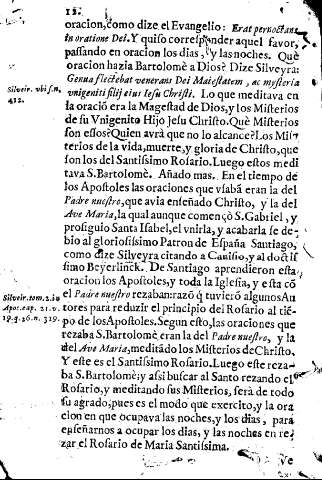 12.
oracion, como dize el Evangelio: Erat pernoctans
in oratione Dei. Y quiso corresponder aquel favor,
passando en oracion los dias, y las noches. Què
oracion hazia Bartolomè a Dios? Dize Silveyra:
Genua flectebat venerans Dei Maiestatem, ac mysteria
Silveir. vbi s.n.
412.
vnigeniti filij eius Iesu Christi. Lo que meditava en
la oració era la Magestad de Dios, y los Misterios
de su Vnigenito Hijo Jesu Christo. Què Misterios
son essos? Quien avrà que no lo alcance? Los Mis-
terios de la vida, muerte, y gloria de Christo, que
son los del Santissimo Rosario. Luego estos medi
tava S. Bartolomè. Añado mas. En el tiempo de
los Apostoles las oraciones que vsabã eran la del
Padre nuestro, que avia enseñado Christo, y la del
Ave Maria, la qual aunque començò S. Gabriel, y
prosiguio Santa Isabel, el vnirla, y acabarla se de-
bio al gloriosissimo Patron de España Santiago,
como dize Silveyra citando a Canisio, y al doctis
simo Beyerlinck. De Santiago aprendieron esta
oracion los Apostoles, y toda la Iglesia, y esta cõ
Silveir. tom. 2. in
Apoc. cap. 21. v.
19. q. 26. n. 319.
el Padre nuestro rezaban: razõ q̃ tuvierõ algunos Au
tores para reduzir el principio del Rosario al tiẽ-
po de los Apostoles. Segun esto, las oraciones que
rezaba S. Bartolomè eran la del Padre nuestro, y la
del Ave Maria, meditãdo los Misterios de Christo.
Y este es el Santissimo Rosario. Luego este reza-
ba S. Bartolomè: y assi buscar al Santo rezando el
Rosario, y meditando sus Misterios, serà de todo
su agrado, pues es el modo que exercito, y la ora
cion en que ocupava las noches, y los dias, para
enseñarnos a ocupar los dias, y las noches en re-
zar el Rosario de Maria Santissima.